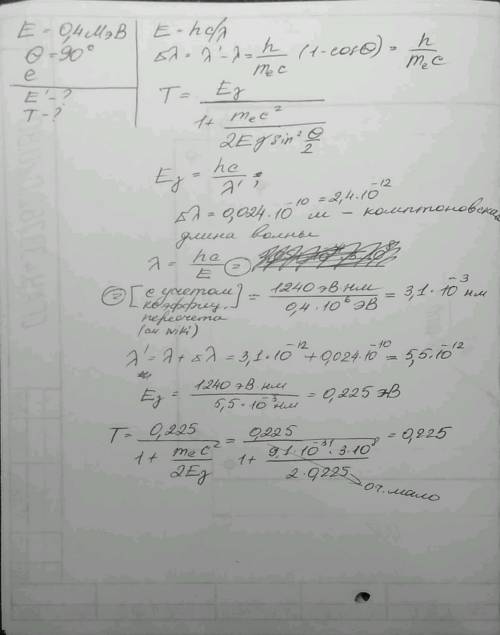 E = 0,4 МэВ
θ = 90°
e
E' - ?
T - ?
E = hc/λ
Δλ = λ' - λ = h/(mₑc) (1 - cosθ) = h/(mₑc)
T = E_γ / (1 + mₑc² / (2E_γ sin² θ/2))
E_γ = hc/λ' ;
Δλ = 0,024·10⁻¹⁰ м = 2,4·10⁻¹² - комптоновская
длина волны
λ = hc/E =
= [с учетом коэффиц. пересчета (см wiki)] = 1240 эВ·нм / 0,4·10⁶ эВ = 3,1·10⁻³ нм
λ' = λ + Δλ = 3,1·10⁻¹² + 0,024·10⁻¹⁰ = 5,5·10⁻¹²
E_γ = 1240 эВ·нм / 5,5·10⁻³ нм = 0,225 эВ
T = 0,225 / (1 + mₑc² / 2E_γ) = 0,225 / (1 + 9,1·10⁻³¹·3·10⁸ / 2·0,225) = 0,225
оч. мало